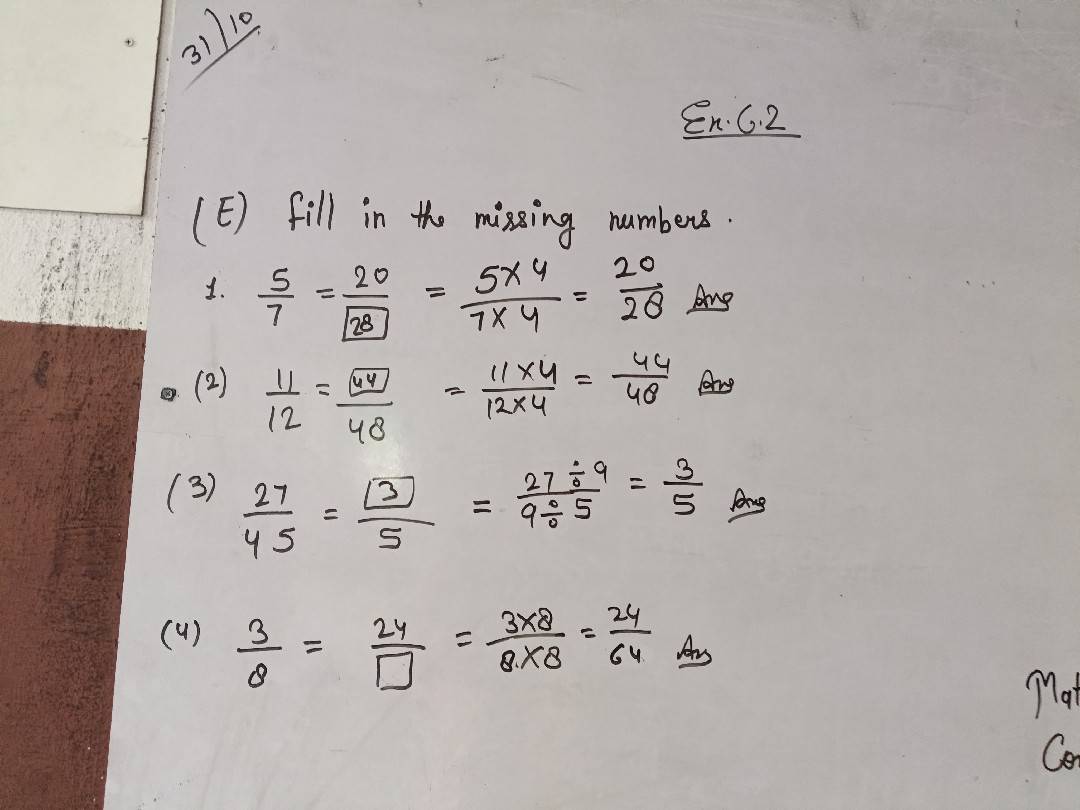 31/10
Ex. 6.2
(E) fill in the missing numbers.
1. 5/7 = 20/28 = 5×4/7×4 = 20/28 Ans
(2) 11/12 = 44/48 = 11×4/12×4 = 44/48 Ans
(3) 27/45 = 3/5 = 27÷9/9÷5 = 3/5 Ans
(4) 3/8 = 24/□ = 3×8/8×8 = 24/64 Ans
Mat
Con